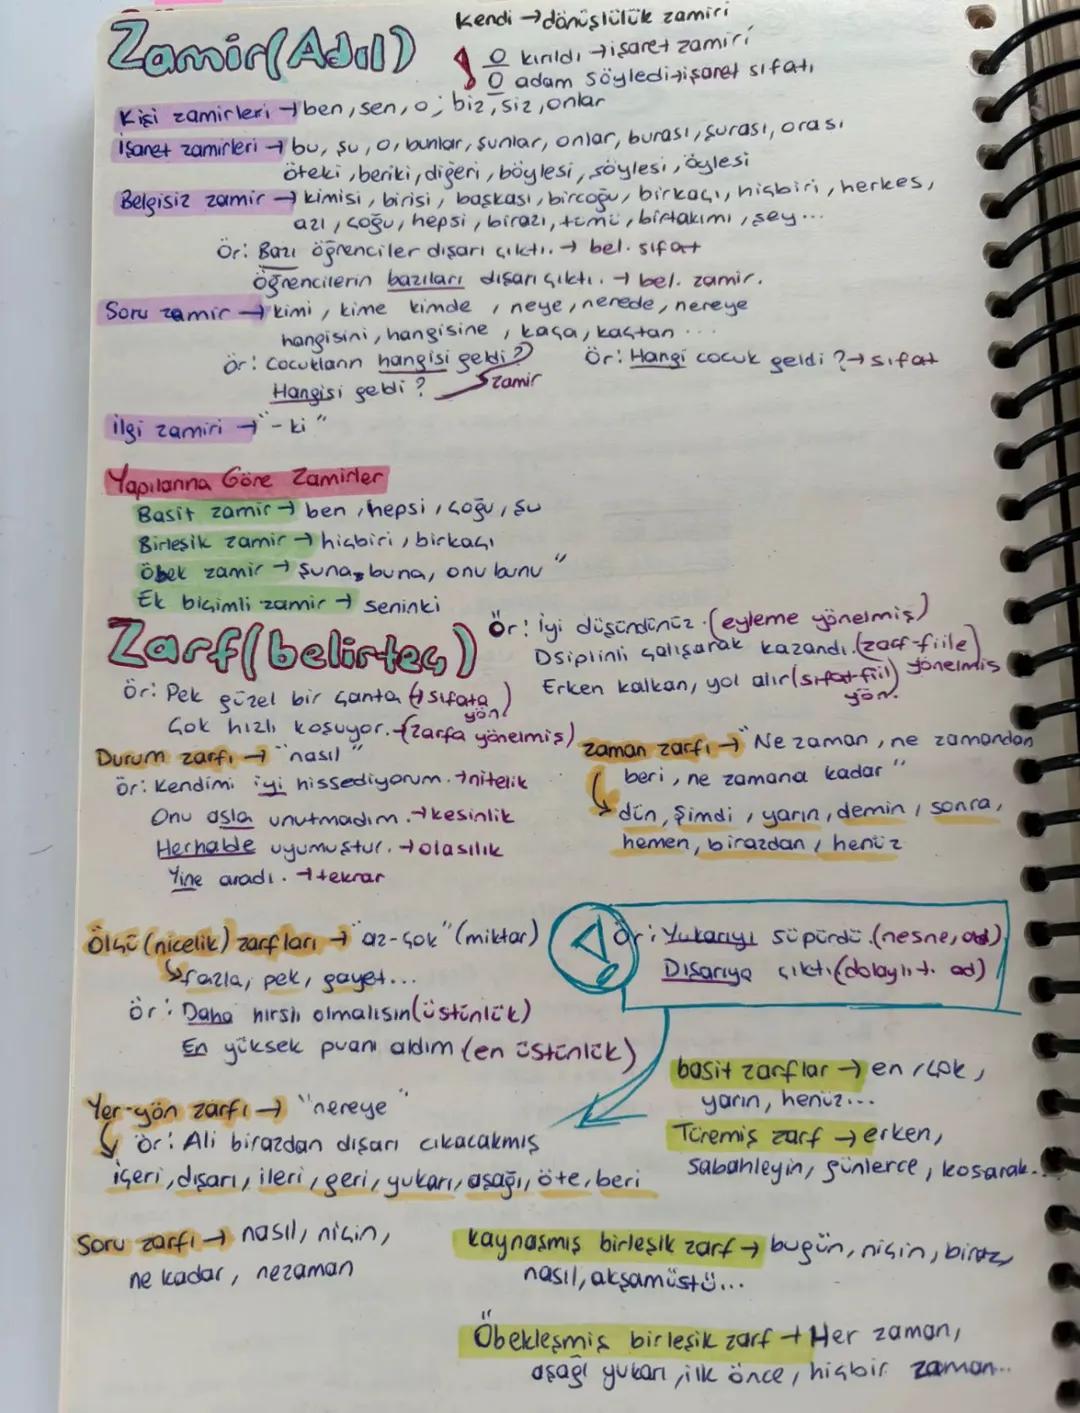 Zamir(Adıl)
Kendi → dönüşlülük zamiri
O kırıldı → işaret zamiri
O adam söyledi → işaret sıfatı
Kişi zamirleri → ben, sen, o, biz, siz, onlar
İşaret zamirleri → bu, şu, o, bunlar, şunlar, onlar, burası, şurası, orası
öteki, beriki, diğeri, böylesi, şöylesi, öylesi
Belgisiz zamir → kimisi, birisi, başkası, birçoğu, birkaçı, hiçbiri, herkes,
azı, çoğu, hepsi, birazı, tümü, birtakımı, şey...
Ör: Bazı öğrenciler dışarı çıktı. → bel. sıfat
Öğrencilerin bazıları dışarı çıktı. → bel. zamir.
Soru zamir → kimi, kime kimde, neye, nerede, nereye
hangisini, hangisine, kaça, kaçtan ...
Ör: Çocukların hangisi geldi?
Hangisi geldi? zamir
Ör: Hangi çocuk geldi? → sıfat
İlgi zamiri → "-ki"
Yapılarına Göre Zamirler
Basit zamir → ben, hepsi, çoğu, şu
Birleşik zamir → hiçbiri, birkaçı
Öbek zamir → şuna, buna, onu bunu"
Ek biçimli zamir → seninki
Zarf(belirteç)
Ör: İyi düşündünüz.(eyleme yönelmiş)
Dsiplinli çalışarak kazandı.(zarf-fiile yönelmiş)
Erken kalkan, yol alır(sıfat-fiil yön.)
Ör: Pek güzel bir çanta (→ sıfata yön.)
Çok hızlı koşuyor.→(zarfa yönelmiş)
Durum zarfı → "nasıl"
Ör: Kendimi iyi hissediyorum. → nitelik
Onu asla unutmadım. → kesinlik
Herhalde uyumuştur. → olasılık
Yine aradı. → tekrar
zaman zarfı → "Ne zaman, ne zamandan
beri, ne zamana kadar"
dün, şimdi, yarın, demin, sonra,
hemen, birazdan, henüz
Ölçü (nicelik) zarfları → "az-çok" (miktar)
fazla, pek, gayet...
Ör: Daha hırslı olmalısın(üstünlük)
En yüksek puanı aldım (en üstünlük)
Ör: Yukarıyı süpürdü.(nesne, ad)
Dışarıya çıktı(dolaylı t. ad)
Yer-yön zarfı → "nereye"
Ör: Ali birazdan dışarı cıkacakmış
içeri, dışarı, ileri, geri, yukarı, aşağı, öte, beri
basit zarflar → en, çok,
yarın, henüz...
Türemiş zarf → erken,
sabahleyin, günlerce, koşarak..
Soru zarfı → nasıl, niçin,
ne kadar, nezaman
kaynaşmış birleşik zarf → bugün, niçin, biraz,
nasıl, akşamüstü...
Öbekleşmiş birleşik zarf → Her zaman,
aşağı yukarı, ilk önce, hiçbir zaman...